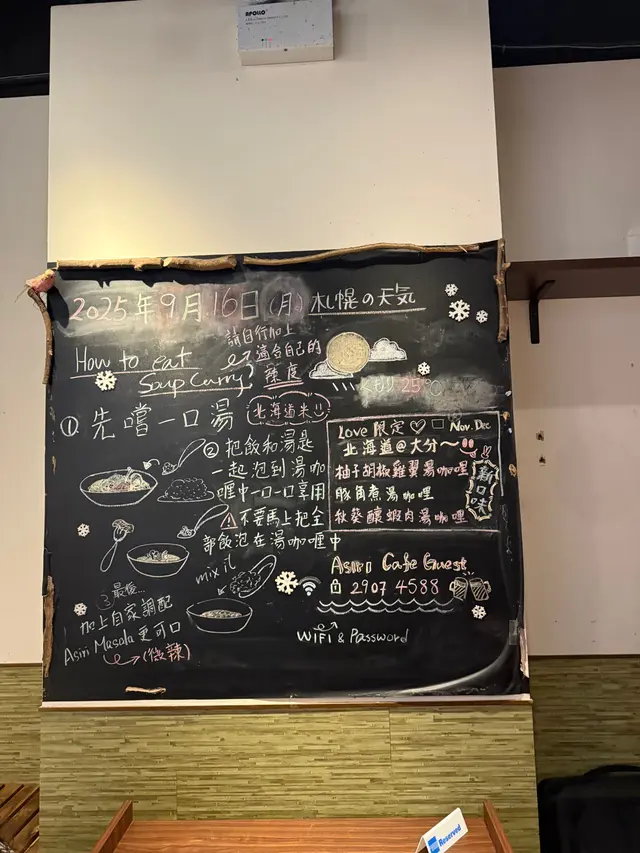 APOLLO
2025年9月16日(月)札幌の天気
How to eat
Soup Curry
請自行加上
適合自己的
辣度
くもり 25℃
① 先嚐一口湯
北海道米!!
② 把飯和湯匙
一起泡到湯咖
喱中一口一口享用
⚠不要馬上把全
部飯泡在湯咖喱中
mix it
③ 最後...
加上自家調配
Asiri Masala更可口
(微辣)
Love 限定 ♡ □ Nov. Dec
北海道@大分~
柚子胡椒雞翼湯咖喱
豚角煮湯咖喱
秋葵釀蝦肉湯咖喱
新口味
Asiri Cafe Guest
2907 4588
WiFi & Password
Reserved